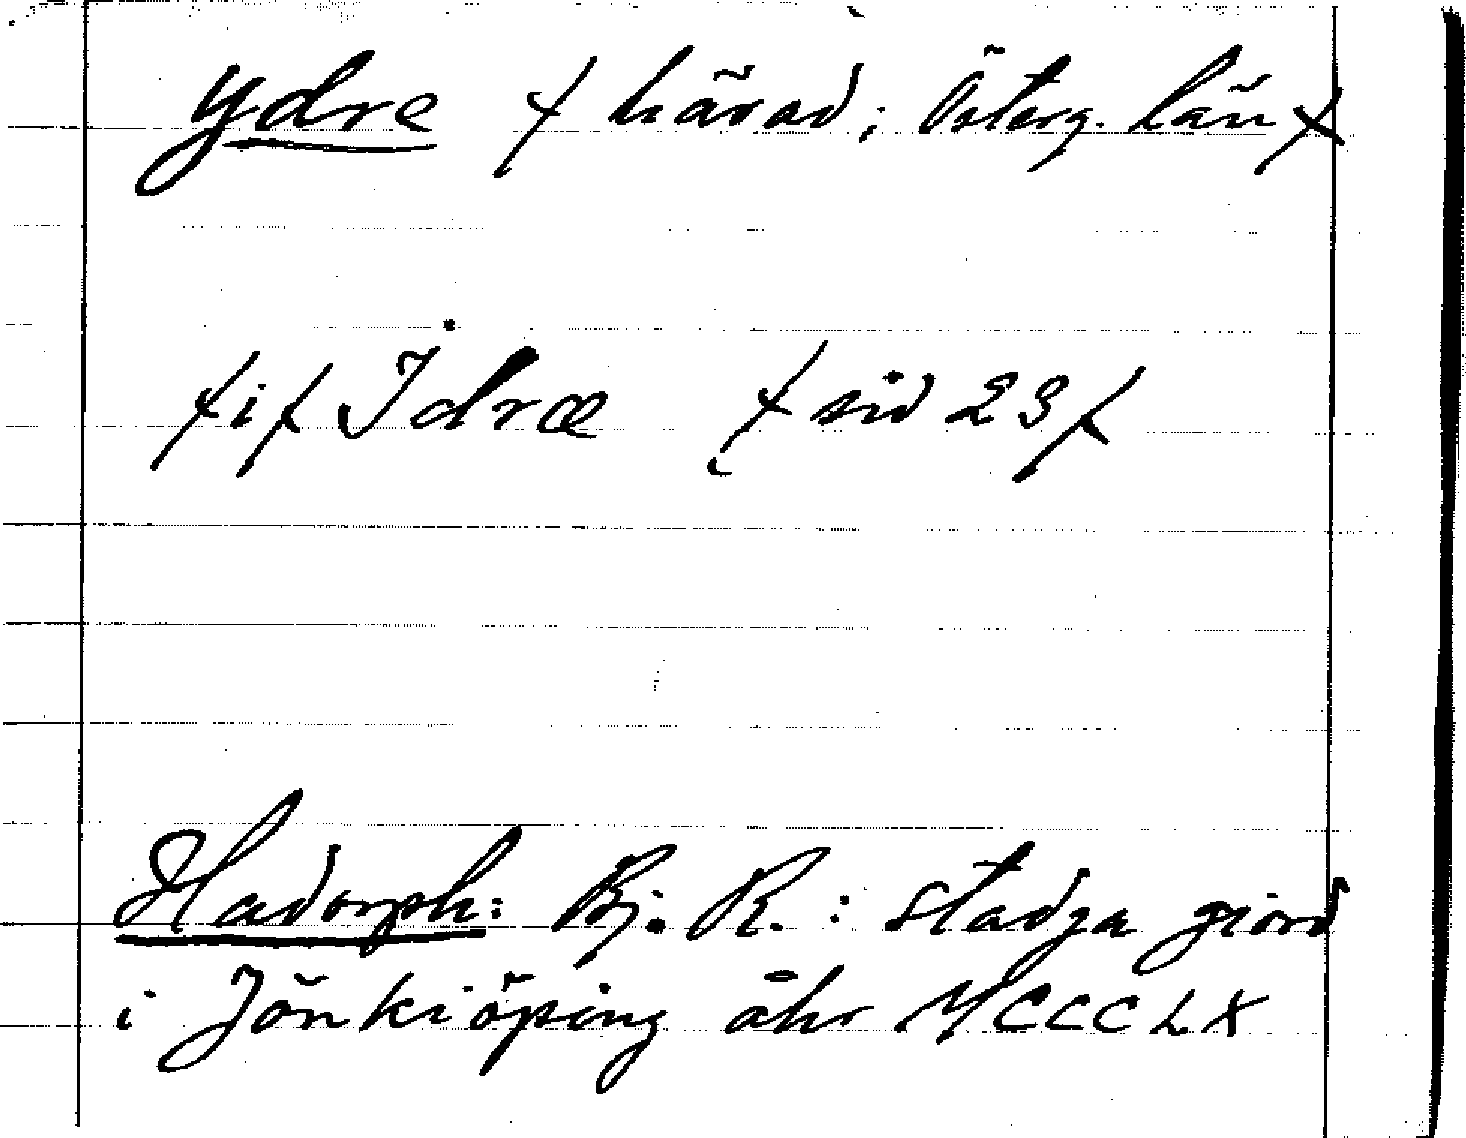 Ydre ⟨härad; Österg. län⟩
⟨i⟩ Idræ ⟨sid 23⟩
Hadorph: Bj. R. : stadga giord
i Jönkiöping åhr MCCCLX